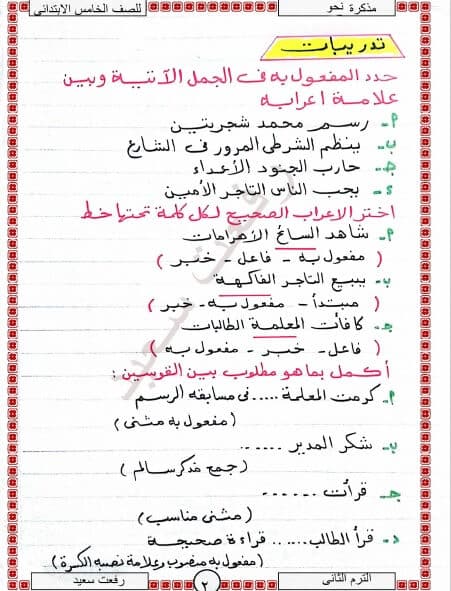 مذكرة نحو
للصف الخامس الابتدائى
تدريبات
حدد المفعول به فى الجمل الآتية وبين
علامة إعرابه
م- رسم محمد شجرتين
ب- ينظم الشرطى المرور فى الشارع
ج- حارب الجنود الأعداء
د- يحب الناس التاجر الأمين
اختر الاعراب الصحيح لكل كلمة تحتها خط
م- شاهد السائح الأهرامات
( مفعول به - فاعل - خبر )
ب- يبيع التاجر الفاكهة
( مبتدأ - مفعول به - خبر )
جـ- كافأت المعلمة الطالبات
( فاعل - خبر - مفعول به )
أكمل بما هو مطلوب بين القوسين :
م- كرمت المعلمة ..... فى مسابقه الرسم
( مفعول به مثنى )
ب- شكر المدير ......
( جمع مذكر سالم )
جـ- قرأت ......
( مثنى مناسب )
د- قرأ الطالب ...... قراءة صحيحة
( مفعول به منصوب وعلامة نصبه الكسرة )
الترم الثانى
٢
رفعت سعيد
رفعت سعيد